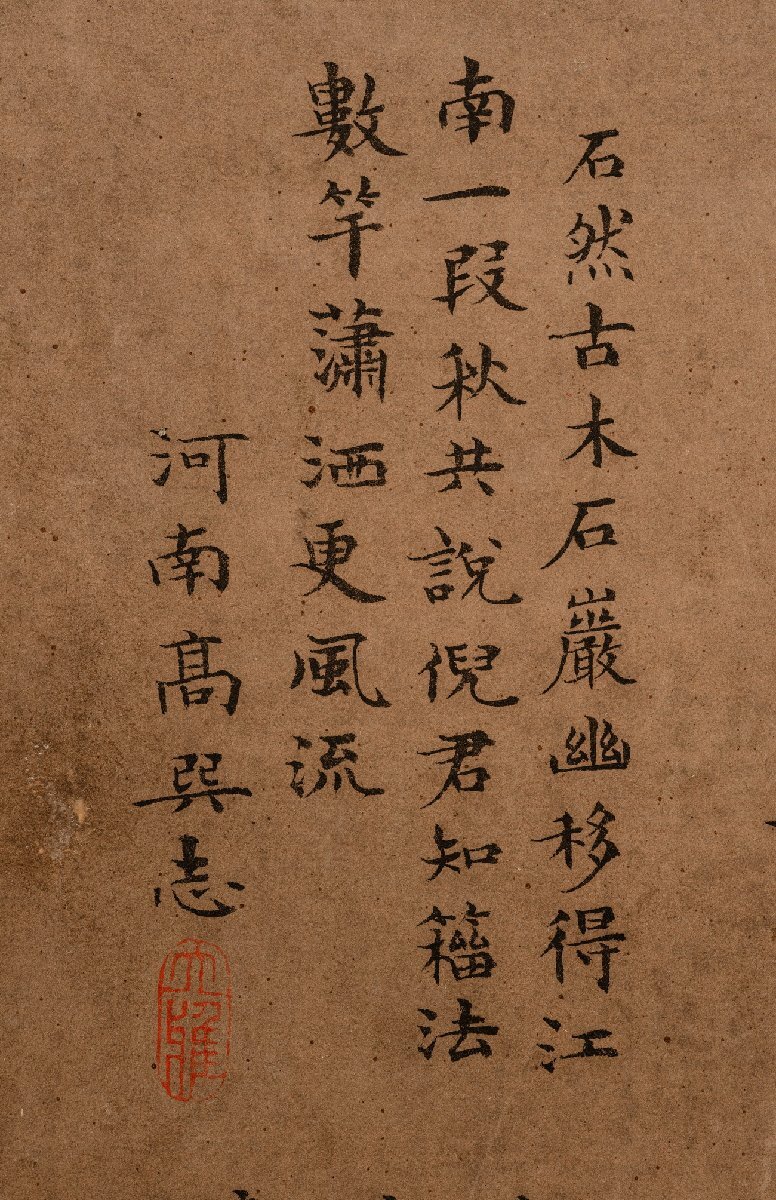 石然古木石巖幽移得江
南一段秋共說倪君知籀法
數竿瀟洒更風流
河南高巽志